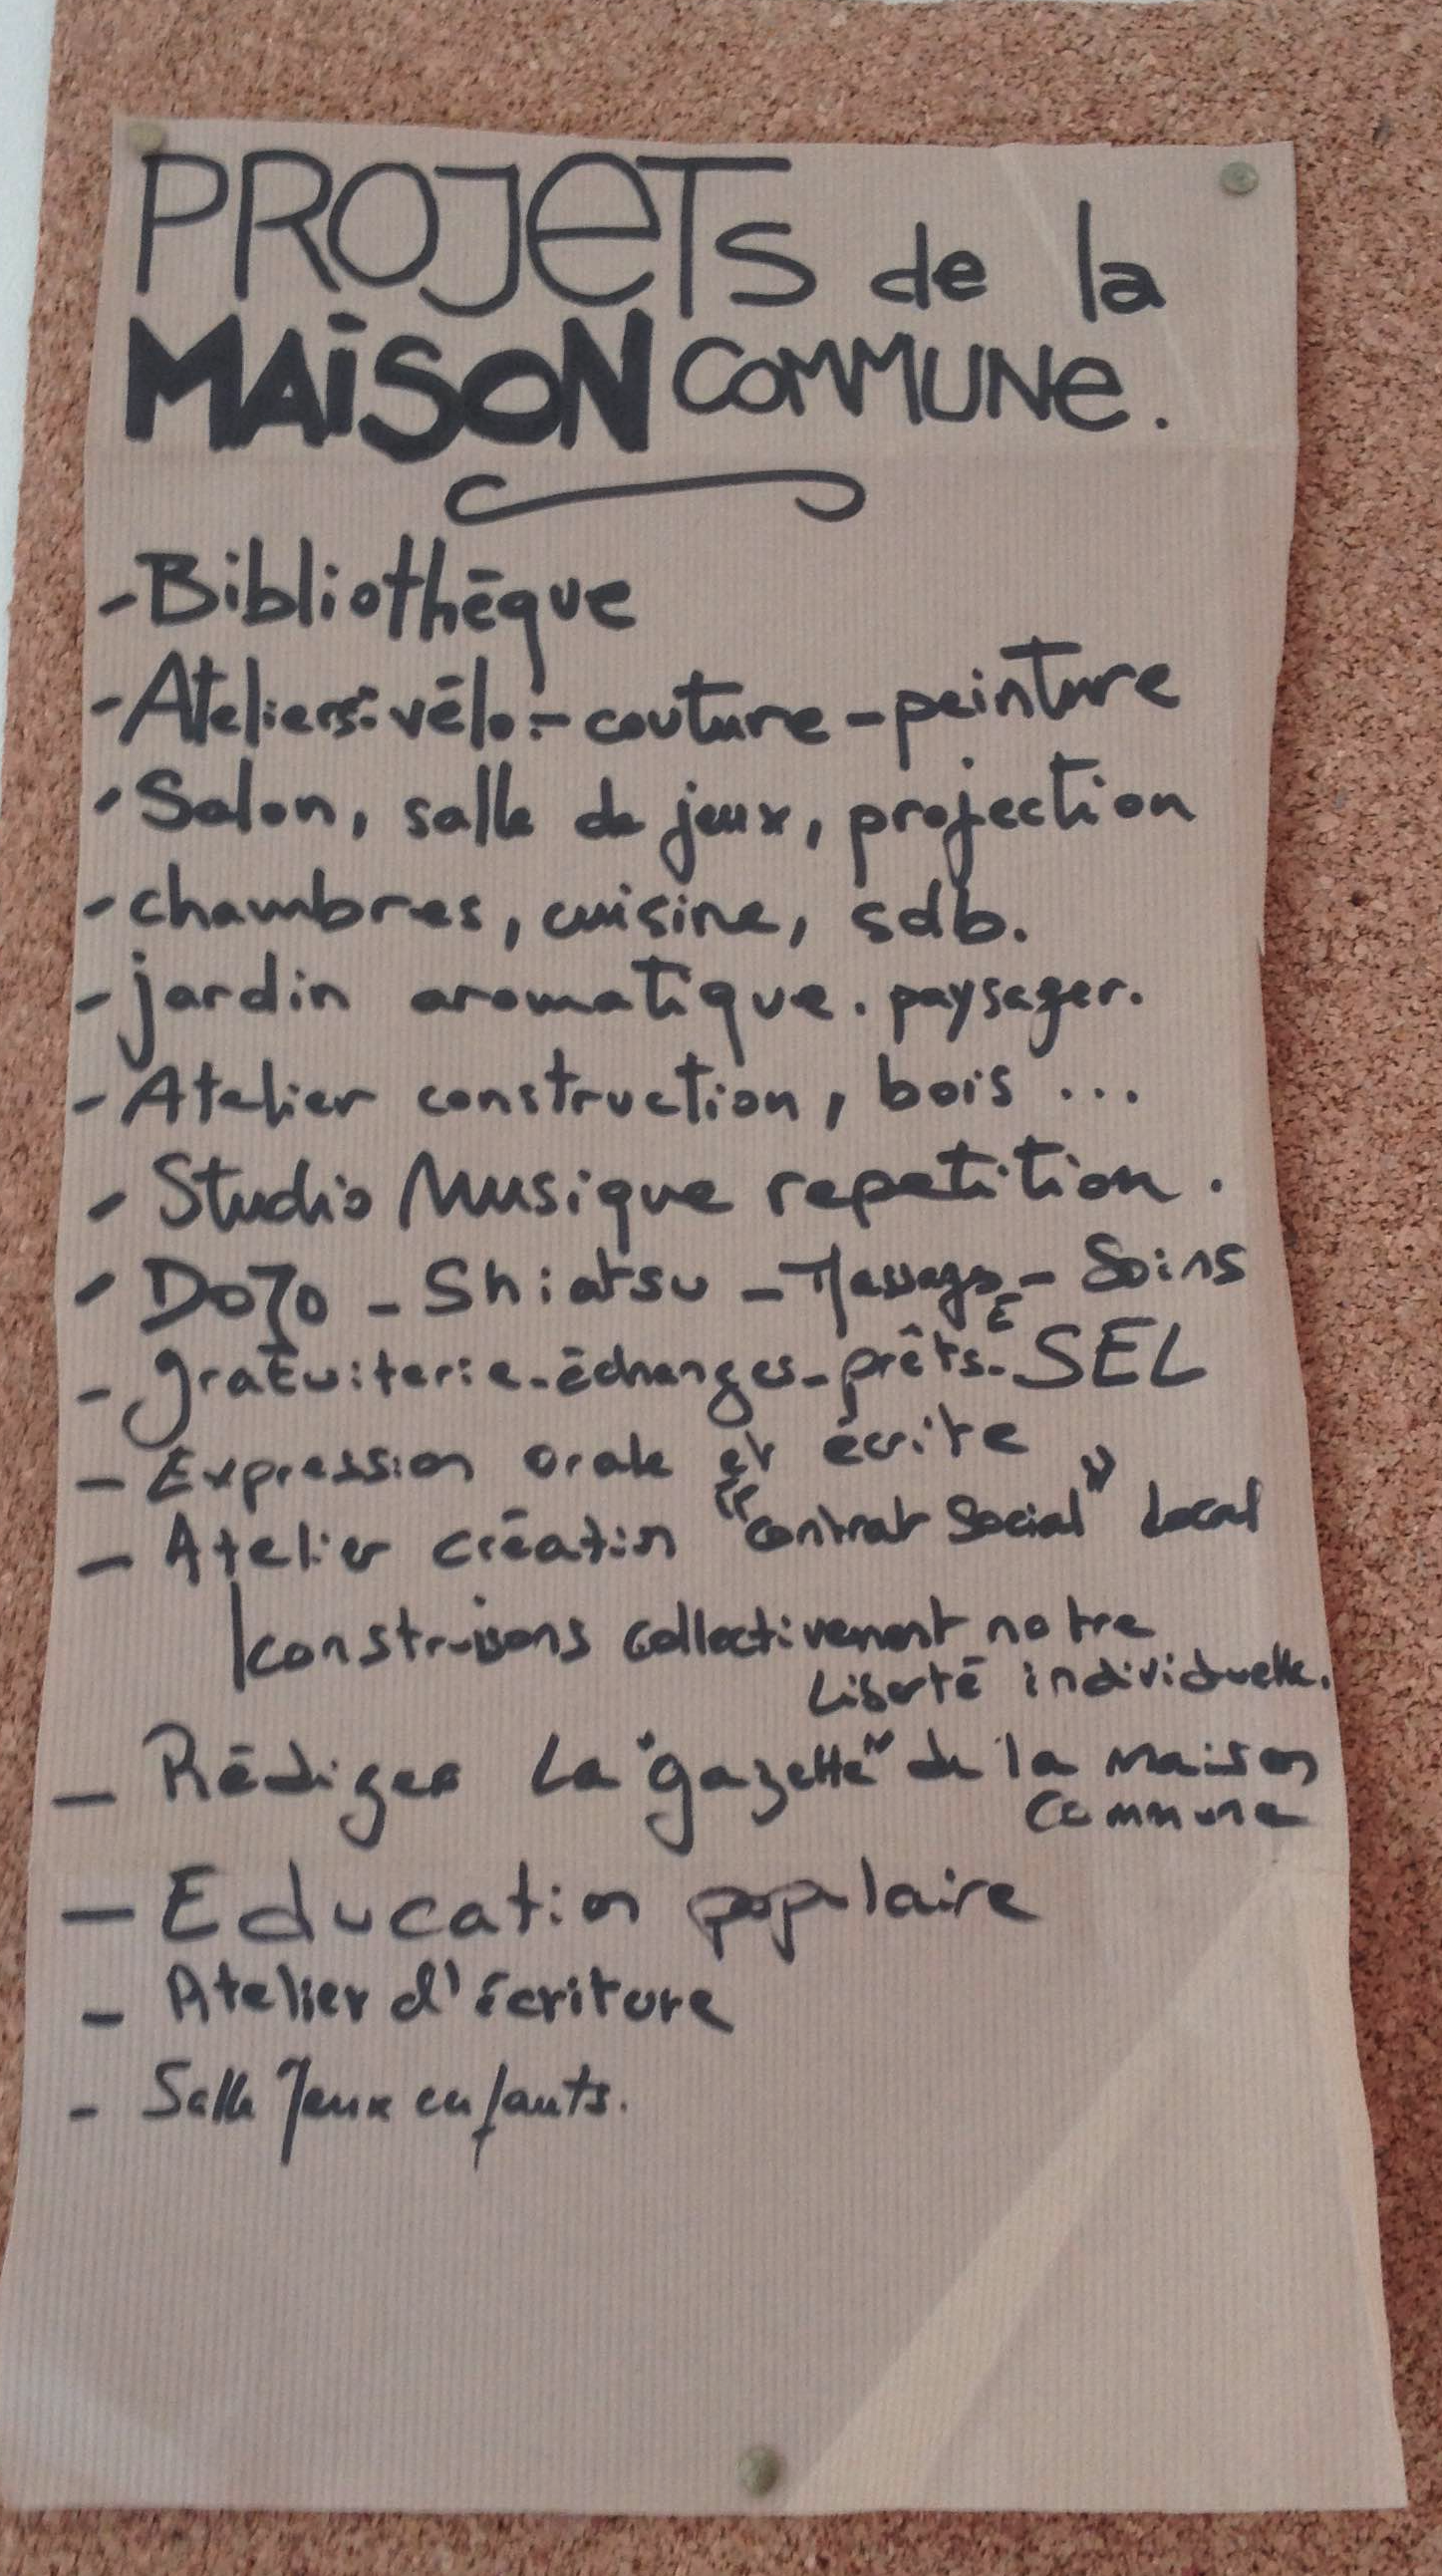 PROJETS de la
MAISON COMMUNE.
- Bibliothèque
- Ateliers: vélo - couture - peinture
- Salon, salle de jeux, projection
- chambres, cuisine, sdb.
- jardin aromatique. paysager.
- Atelier construction, bois ...
- Studio Musique repetition.
- DOJO - Shiatsu - Massage - Soins
- gratuiterie - échanges - prêts - SEL
- Expression orale et écrite
- Atelier création "contrat Social" Local
construisons collectivement notre
Liberté individuelle.
- Rédiger La "gazette" de la maison
commune
- Education populaire
- Atelier d'écriture
- Salle Jeux enfants.